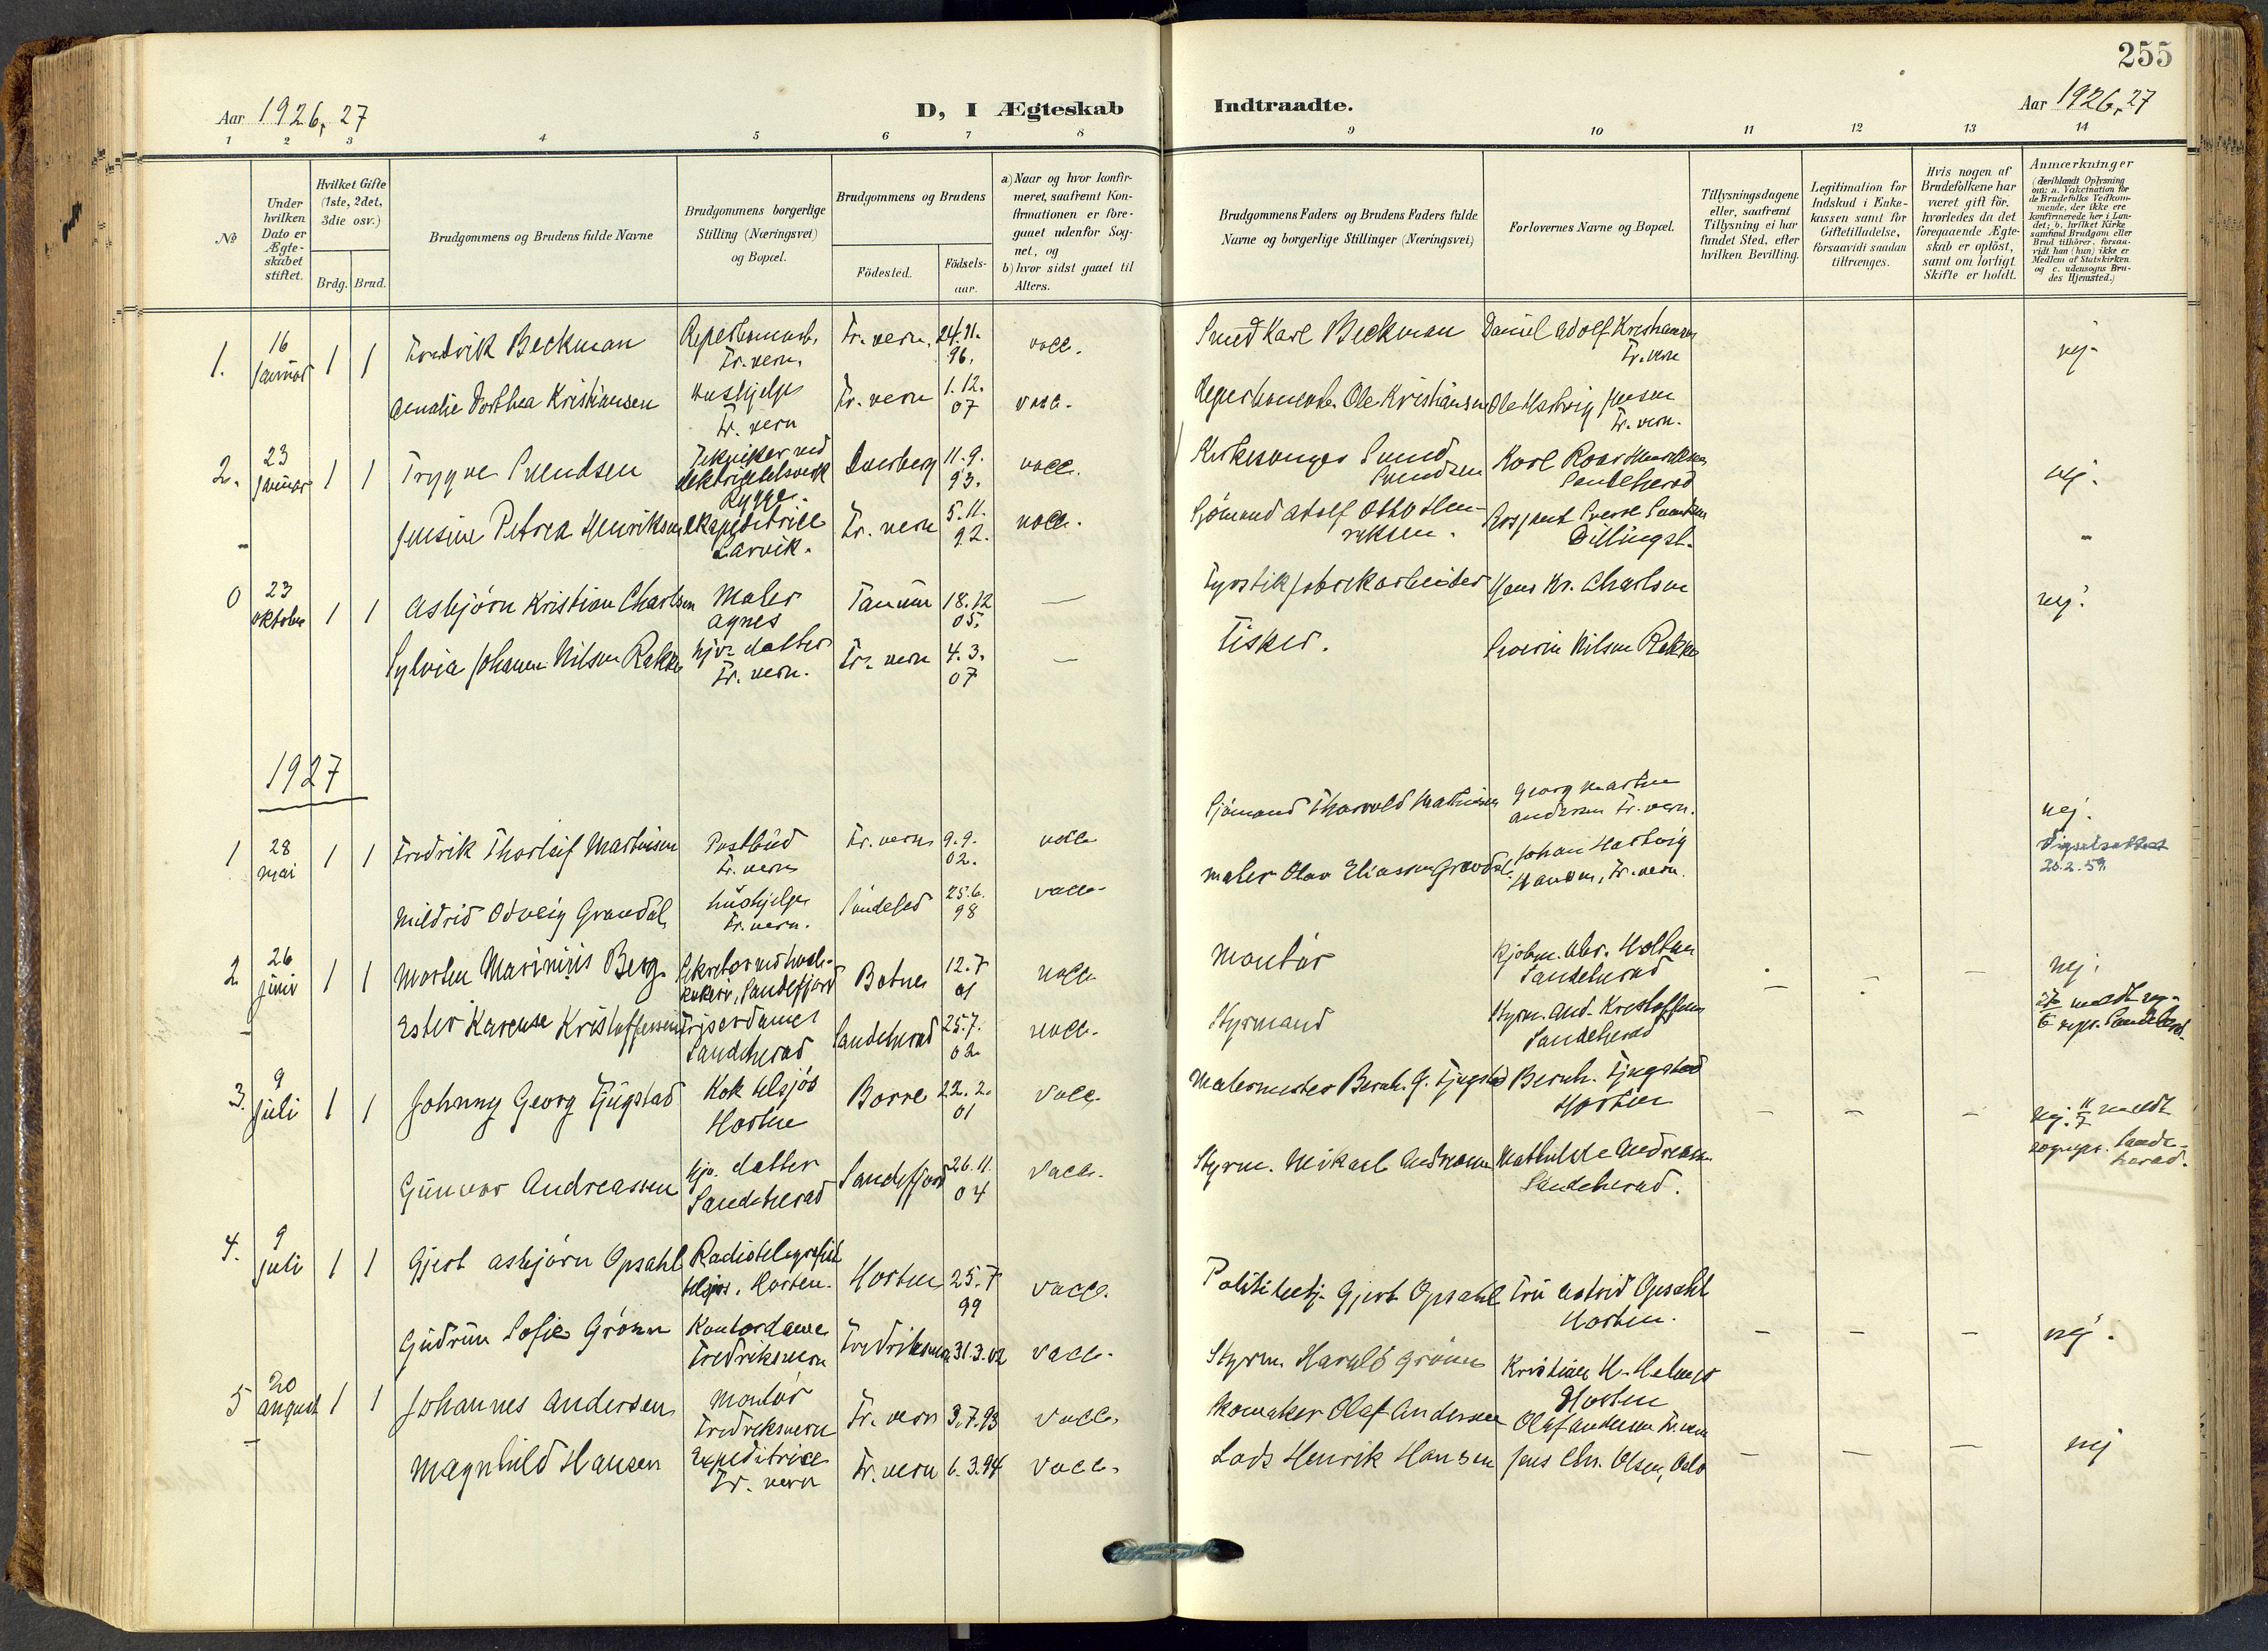 255
Aar 1926, 27
D, I Ægteskab Indtraadte.
Aar 1926, 27
1 2 3 4 5 6 7 8 9 10 11 12 13 14
No
Under hvilken Dato er Ægteskabet stiftet.
Hvilket Gifte (1ste, 2det, 3die osv.)
Brdg. Brud.
Brudgommens og Brudens fulde Navne
Brudgommens borgerlige Stilling (Næringsvei) og Bopæl.
Brudgommens og Brudens
Födested. Födsels-aar.
a) Naar og hvor konfirmeret, saafremt Konfirmationen er foregaaet udenfor Sognet, og
b) hvor sidst gaaet til Alters.
Brudgommens Faders og Brudens Faders fulde Navne og borgerlige Stillinger (Næringsvei)
Forlovernes Navne og Bopæl.
Tillysningsdagene eller, saafremt Tillysning ei har fundet Sted, efter hvilken Bevilling.
Legitimation for Indskud i Enkekassen samt for Giftetilladelse, forsaavidt saadan tiltrænges.
Hvis nogen af Brudefolkene har været gift för, hvorledes da det foregaaende Ægteskab er oplöst, samt om lovligt Skifte er holdt.
Anmærkninger
(deriblandt Oplysning om: a. Vakcination for de Brudefolks Vedkommende, der ikke ere konfirmerede her i Landet; b. hvilket Kirkesamfund Brudgom eller Brud tilhörer, forsaavidt han (hun) ikke er Medlem af Statskirken og c. udensogns Brudes Hjemsted.)
1. 16 Januar 1 1 Fredrik Beckman
Fr. vern.
Fr. vern. 24.11.
96.
vacc.
Smed Karl Beckman
Daniel Adolf Kristiansen
Fr. vern
nej.
Amalie Dorthea Kristiansen
Hushjelp
Fr. vern
Fr. vern 1.12.
07
vacc.
Ole Kristiansen
Ole Hartvig Jensen
Fr. vern.
2. 23 Januar 1 1 Trygve Svendsen
Tekniker ved
elektrisitetsverk
Rygge.
11.9.
93.
vacc.
Kirkesanger
Svendsen
Karl
Sandeherad
nej.
Jensine Petrea Henriksen
ekspeditrice
Larvik.
Fr. vern 5.11.
92.
vacc.
Sjömand Adolf Otto Hen-
riksen.
Sverre Svendsen
Dillingst.
0 23 Oktober 1 1 Asbjörn Kristian Charlsen
Maler
Agnes
Tanum 18.12
05.
—
Fyrstikfabrikarbeider
Hans Kr. Charlsen
nej.
Sylvia Johanne Nilsen Rakke
hjv. datter
Fr. vern.
Fr. vern 4.3.
07
—
Fisker.
Severin Nilsen Rakke
1927
1 28 mai 1 1 Fredrik Thorleif Martinsen
Postbud
Fr. vern
Fr. vern 9.9.
02.
vacc
Sjömand Thorvald
Georg Martin
Andersen Fr. vern.
nej.
Vigselsattest
Mildrid Odveig Grandal
hushjelp
Fr. vern.
25.6.
98
vacc.
maler Olav Eliassen Grandal.
Johan Hartvig
Hansen, Fr. vern.
2 26 juni 1 1 Morten Marinius Berg
Sandefjord
Botne 12.7
01
vacc
Montör
Kjöbm. Abr. Holtan
Sandeherad
nej.
Ester Karense Kristoffersen
Friserdame
Sandeherad
Sandeherad 25.7.
02.
vacc.
Styrmand
Styrm. And. Kristoffersen
Sandeherad
3. 9 juli 1 1 Johnny Georg Fjugstad
Kok tilsjös
Horten
Borre 22.2.
01
vacc.
Malermester Bernh. G. Fjugstad
Bernh. Fjugstad
Horten
nej. 11/7 meldt
sognepr. Sande-
herad.
Gunvor Andreassen
hjv. datter
Sandeherad
Sandefjord 26.11.
04
vacc.
Styrm. Mikael Andreassen
Mathilde Andreassen
Sandeherad.
4. 9 juli 1 1 Gjert Asbjörn Opsahl
Radiotelegrafist
tilsjös. Horten.
Horten 25.7
99
vacc.
Politibetj. Gjert Opsahl
Fru Astrid Opsahl
Horten.
nej.
Gudrun Sofie Grönn
Kontordame
Fredriksvern
Fredriksvern 31.3.02
vacc.
Styrm. Harald Grönn
Kristian H.
Horten
5 20 august 1 1 Johannes Andersen
Montör
Fredriksvern
Fr. vern 3.7.93
vacc.
Skomaker Olaf Andersen
Olaf Andersen Fr. vern
Magnhild Hansen
Expeditrice
Fr. vern
Fr. vern 6.3.94
vacc.
Lods Henrik Hansen
Jens Chr. Olsen, Oslo
nej